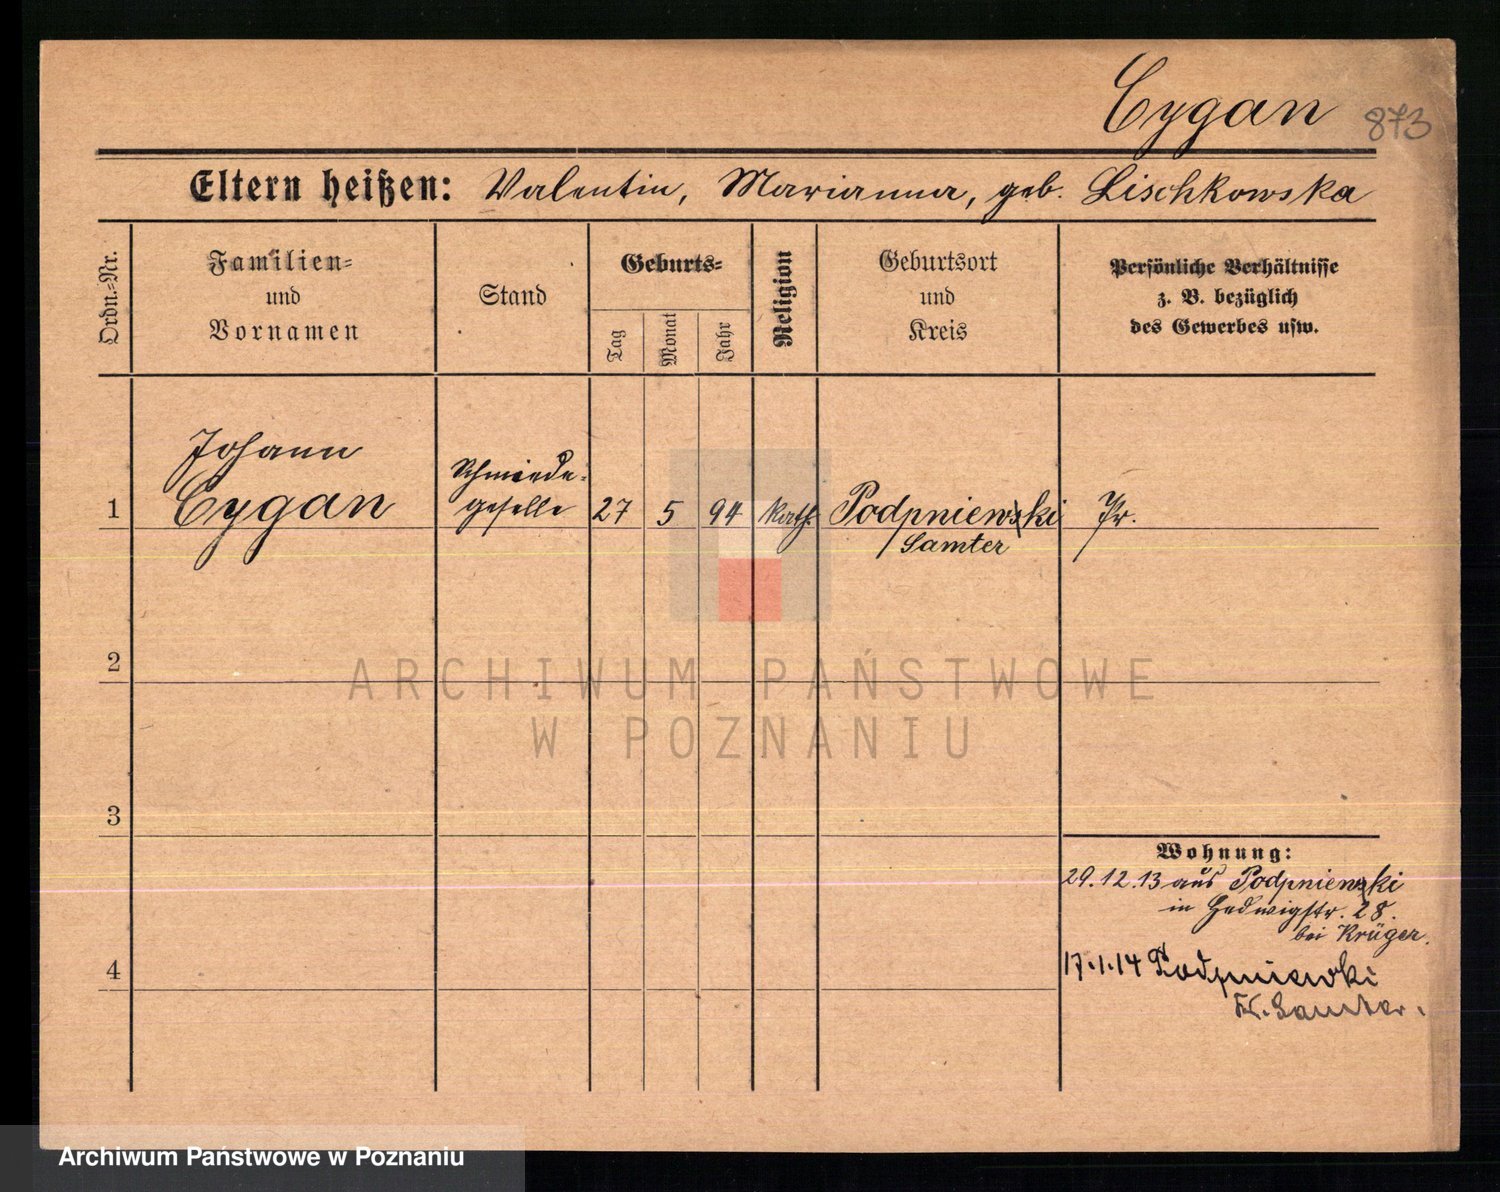 Cygan 873
Eltern heißen: Valentin, Marianna, geb. Lischkowska
Ordn.-Nr.
Familien-
und
Vornamen
Stand
Geburts-
Tag
Monat
Jahr
Religion
Geburtsort
und
Kreis
Persönliche Verhältnisse
z. B. bezüglich
des Gewerbes usw.
Johann
Schmiede-
1 Cygan geselle 27 5 94 kath. Podpniewki Pr.
Samter
ARCHIWUM PAŃSTWOWE
W POZNANIU
2
3
Wohnung:
29.12.13 aus Podpniewki
in Hedwigstr. 28.
bei Krüger.
4
17.1.14 Podpniewki
Kr. Samter.
Archiwum Państwowe w Poznaniu